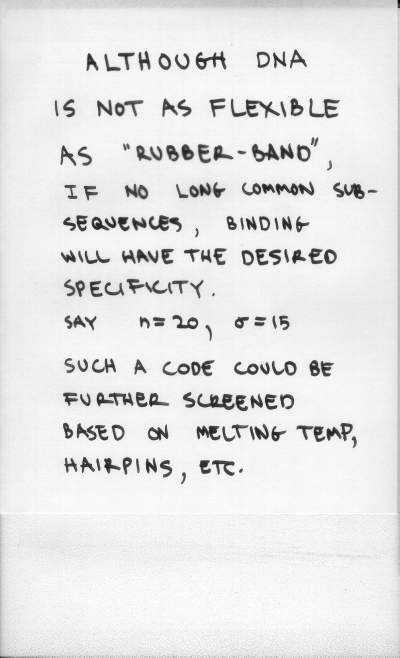 ALTHOUGH DNA
IS NOT AS FLEXIBLE
AS "RUBBER-BAND",
IF NO LONG COMMON SUB-
SEQUENCES, BINDING
WILL HAVE THE DESIRED
SPECIFICITY.
SAY n=20, σ=15
SUCH A CODE COULD BE
FURTHER SCREENED
BASED ON MELTING TEMP,
HAIRPINS, ETC.